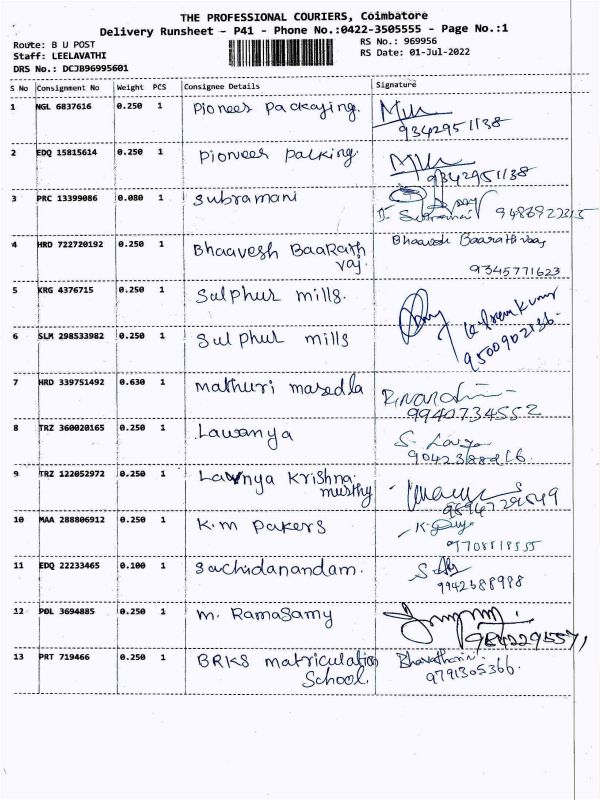 THE PROFESSIONAL COURIERS, Coimbatore
Delivery Runsheet - P41 - Phone No.:0422-3505555 - Page No.:1
Route: B U POST
RS No.: 969956
Staff: LEELAVATHI
RS Date: 01-Jul-2022
DRS No.: DCJB96995601
S No Consignment No Weight PCS Consignee Details Signature
1 NGL 6837616 0.250 1 Pioneer Packaging.
9342951138
2 EDQ 15815614 0.250 1 Pioneer packing.
9342951138
3 PRC 13399086 0.080 1 Subramani
4 HRD 722720192 0.250 1 Bhaavesh BaaRath Bhaavesh Baarathivaaj
vaj. 9345771623
5 KRG 4376715 0.250 1 Sulphur mills.
6 SLM 298533982 0.250 1 Sulphur mills
9500902136.
7 HRD 339751492 0.630 1 mathuri masedla
9940734552
8 TRZ 360020165 0.250 1 Lawanya
9 TRZ 122052972 0.250 1 Lavnya Krishna
musthy
10 MAA 288806912 0.250 1 K.m pakers
11 EDQ 22233465 0.100 1 Sachidanandam.
12 POL 3694885 0.250 1 m. Ramasamy
13 PRT 719466 0.250 1 BRKS matriculation
School. 9791305366.